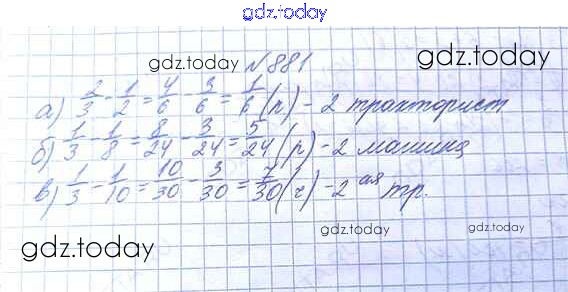 gdz.today
gdz.today
gdz.today
№881
а) 2/3 - 1/2 = 4/6 - 3/6 = 1/6 (п) - 2 тракторист
б) 1/3 - 1/8 = 8/24 - 3/24 = 5/24 (р) - 2 машина
в) 1/3 - 1/10 = 10/30 - 3/30 = 7/30 (г) - 2 ая тр.
gdz.today
gdz.today